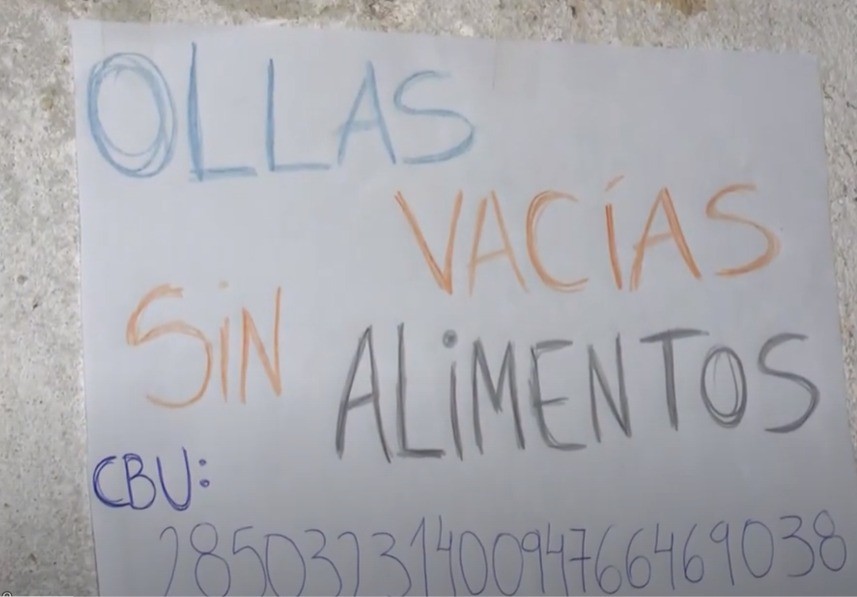 OLLAS
VACÍAS
SIN ALIMENTOS
CBU:
2850323140094766469038